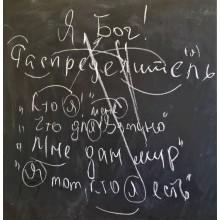 Я Бог!
Распределитель (я)
"Кто я!"
"Что для меня"
"Мне дан мир"
"Я тот, кто я есть"